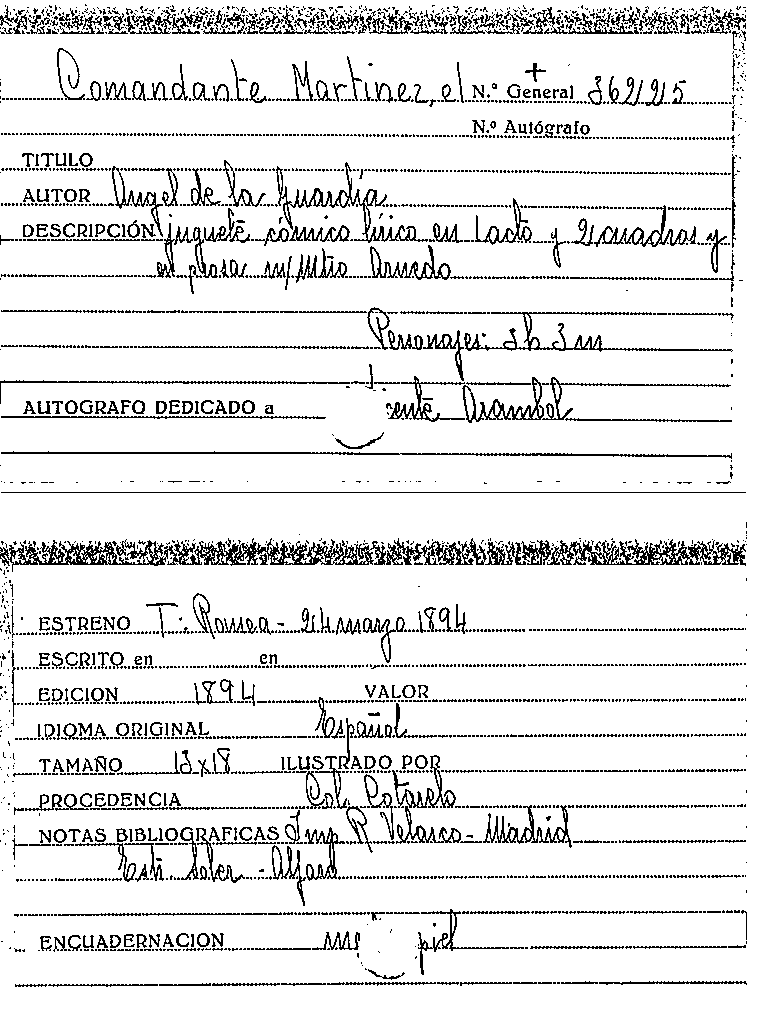 Comandante Martinez, el N.º General 36225
N.º Autógrafo
TITULO
AUTOR Angel de la Guardia
DESCRIPCIÓN juguete cómico lírico en 1 acto y 2 cuadros y
en prosa m/ Mtro Arnedo
Personajes: 3 h 3 m
AUTOGRAFO DEDICADO a Arambol
ESTRENO T: Romea - 24 marzo 1894
ESCRITO en en
EDICION 1894 VALOR
IDIOMA ORIGINAL Español
TAMAÑO 13x18 ILUSTRADO POR
PROCEDENCIA Col. Cotarelo
NOTAS BIBLIOGRAFICAS Imp R Velasco - Madrid
Soler -
ENCUADERNACION piel